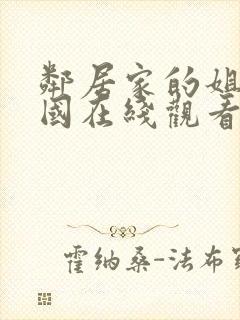 鄰居家的姐
國在綫觀看
霍納桑-法布